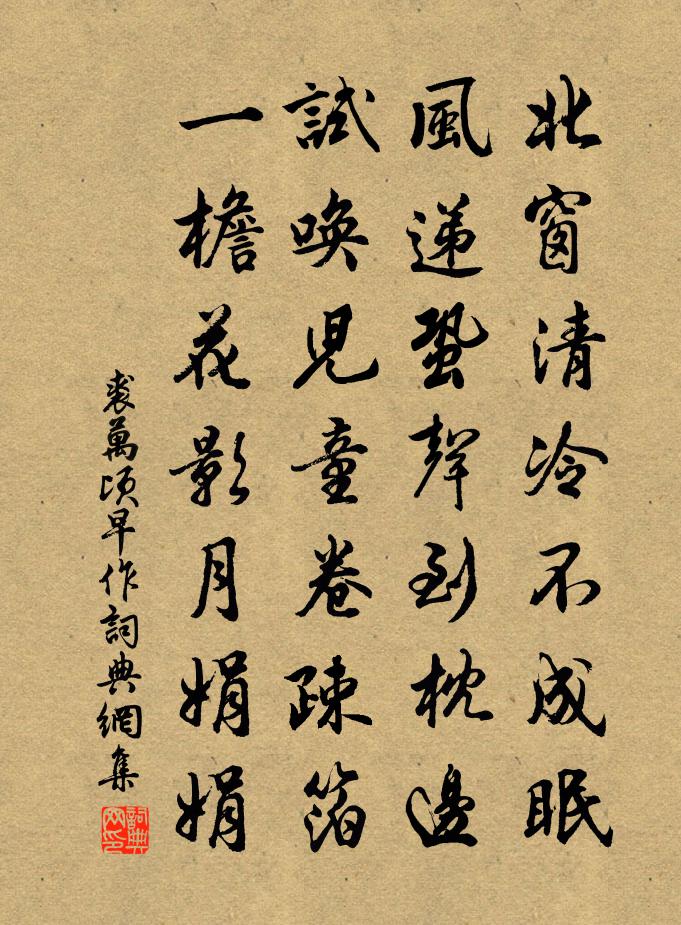 北窗清冷不成眠
風递蛩聲到枕邊
試唤兒童卷疎箔
一檐花影月娟娟
裘萬頃早作詞典網集
詞典网印